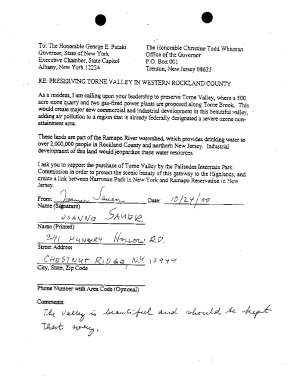 To: The Honorable George E. Pataki
Governor, State of New York
Executive Chamber, State Capitol
Albany, New York 12224
The Honorable Christine Todd Whitman
Office of the Governor
P.O. Box 001
Trenton, New Jersey 08625
RE: PRESERVING TORNE VALLEY IN WESTERN ROCKLAND COUNTY
As a resident, I am calling upon your leadership to preserve Torne Valley, where a 500
acre stone quarry and two gas-fired power plants are proposed along Torne Brook. This
would create major new commercial and industrial development in this beautiful valley,
adding air pollution to a region that is already federally designated a severe ozone non-
attainment area.
These lands are part of the Ramapo River watershed, which provides drinking water to
over 2,000,000 people in Rockland County and northern New Jersey. Industrial
development of this land would jeopardize these water resources.
I ask you to support the purchase of Torne Valley by the Palisades Interstate Park
Commission in order to protect the scenic beauty of this gateway to the Highlands, and
create a link between Harriman Park in New York and Ramapo Reservation in New
Jersey.
From: Joanne Sauer Date: 10/24/00
Name (Signature)
JOANNE SAUER
Name (Printed)
241 HUNGRY HOLLOW RD.
Street Address
CHESTNUT RIDGE, NY 10977
City, State, Zip Code
Phone Number with Area Code (Optional)
Comments:
The valley is beautiful and should be kept
that way.